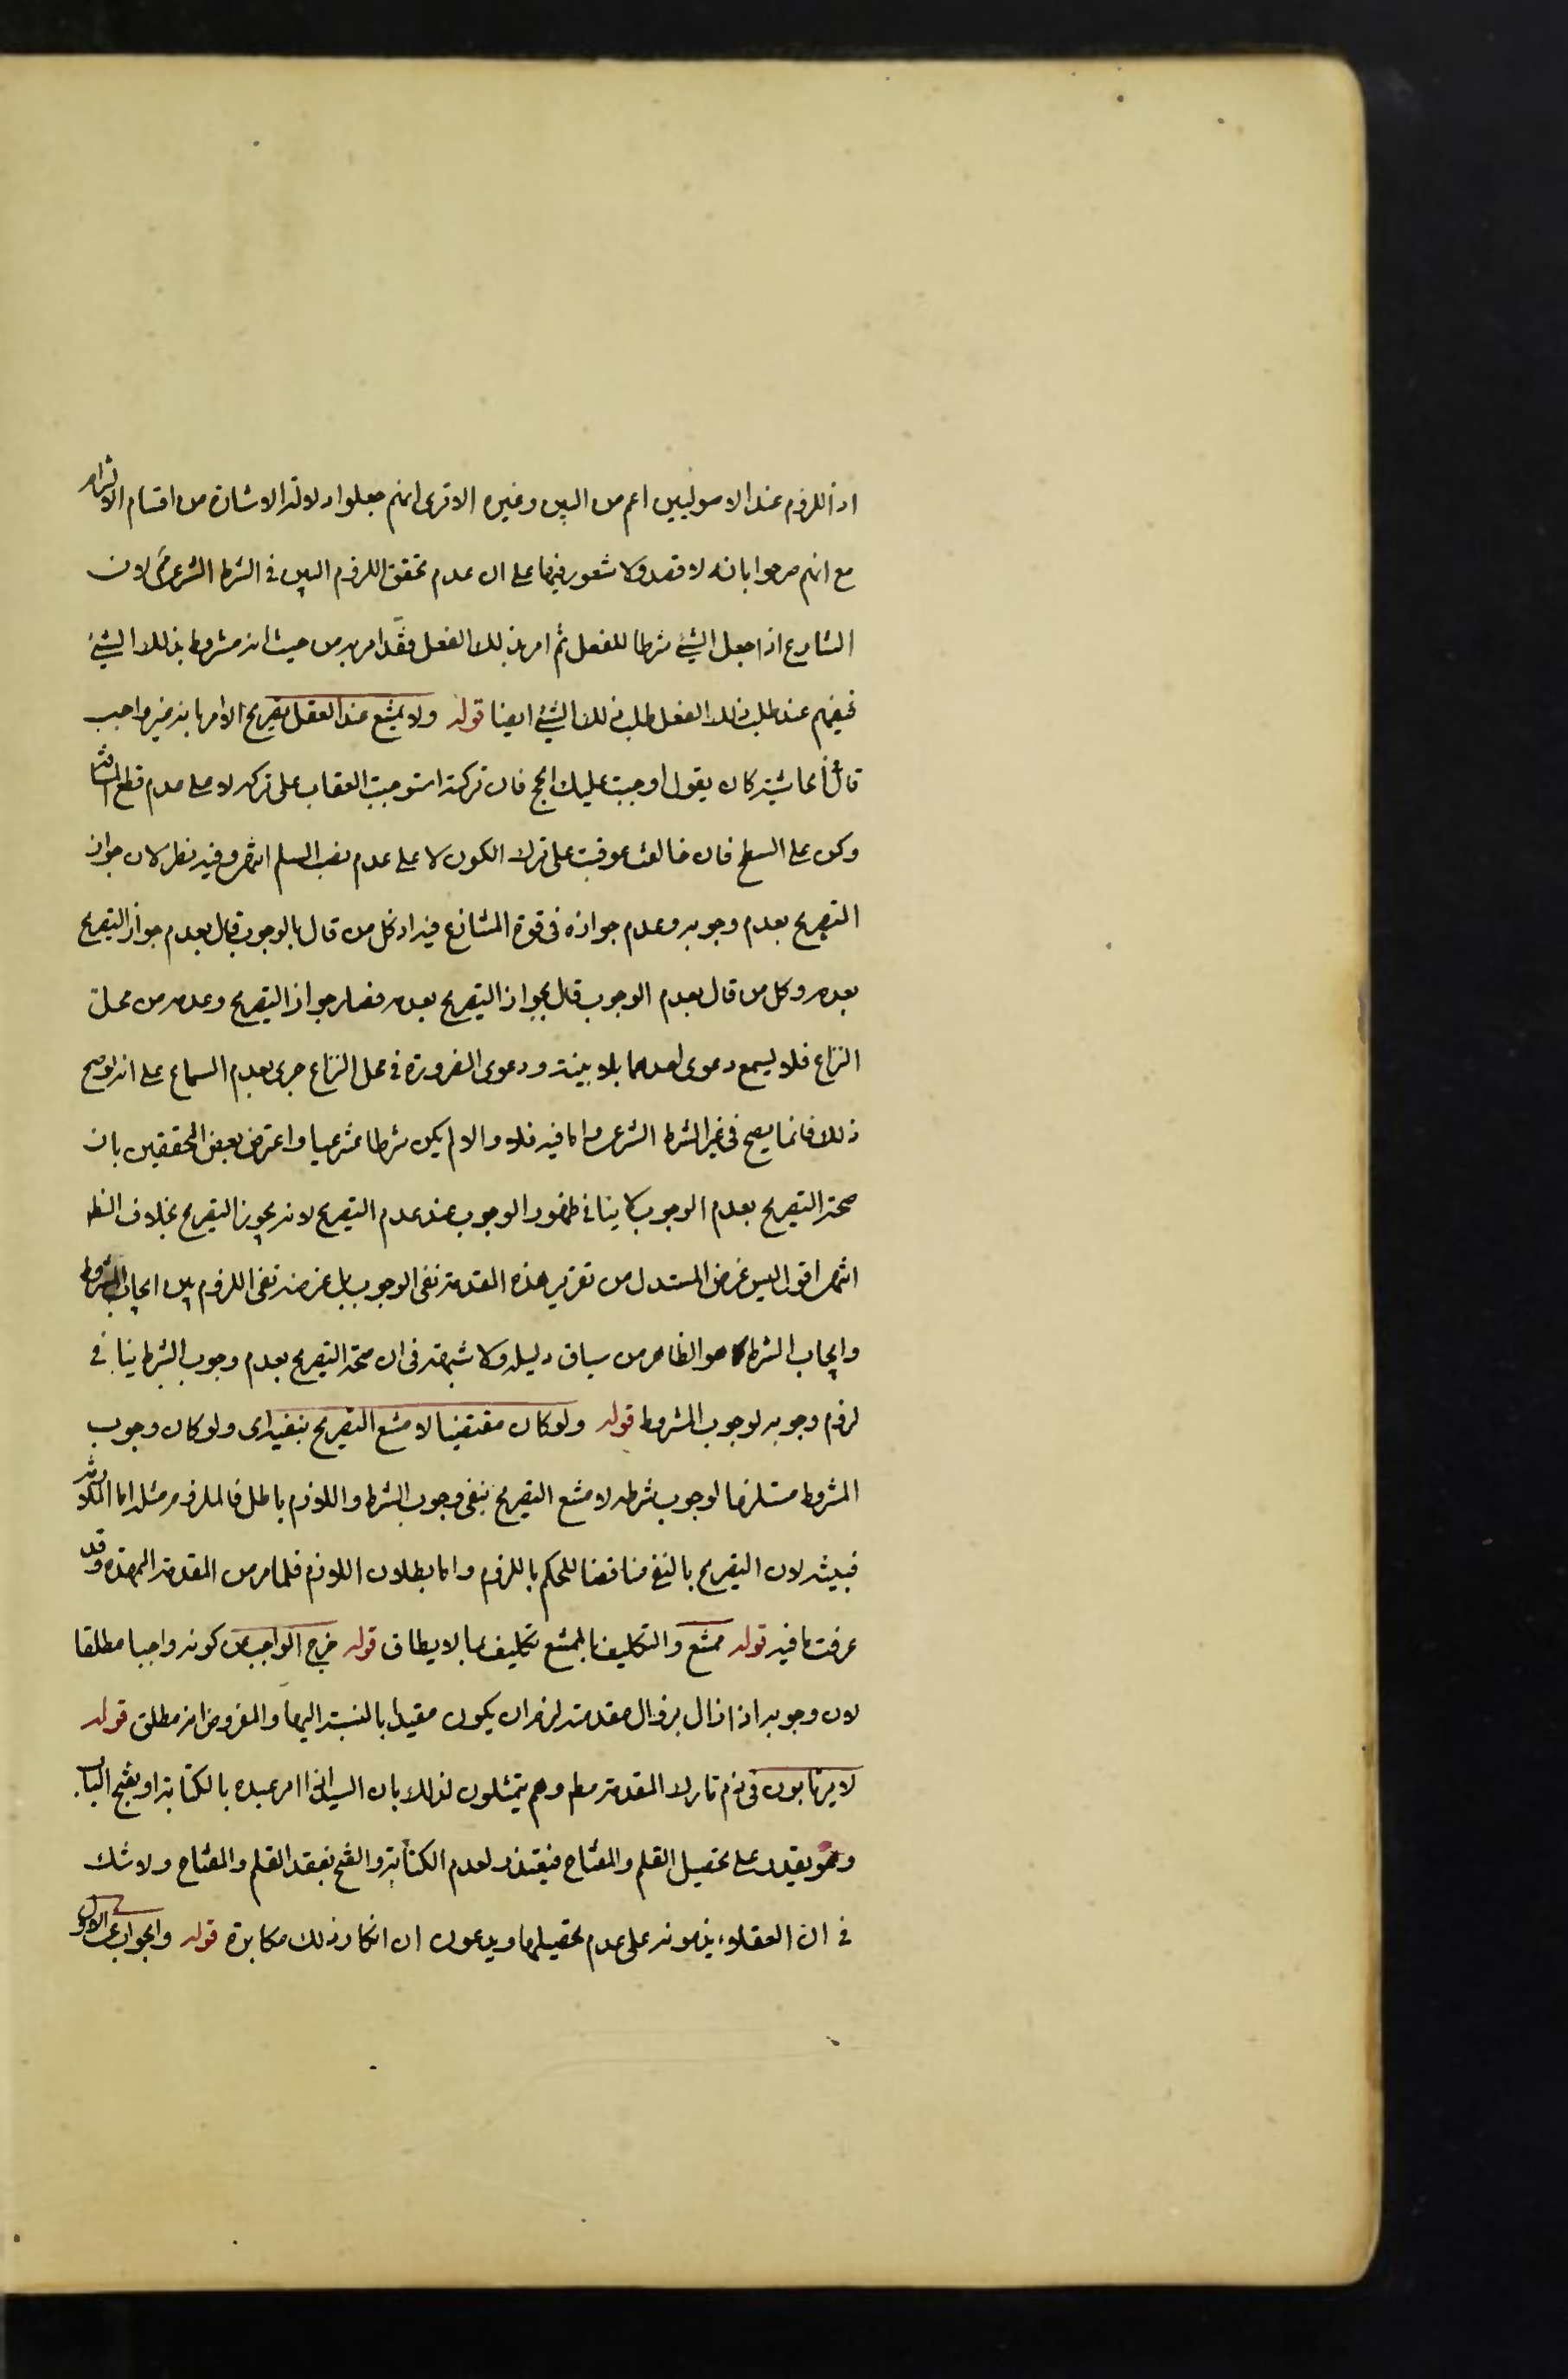 اذ اللزوم عند الاصوليين اعم من البين وغيره الا ترى انهم جعلوا دلالة الاشارة من اقسام الالتزام
مع انهم صرحوا بانه لا قصد ولا شعور فيها على ان عدم تحقق اللزوم البين في الشرط الشرعي مم لان
الشارع اذا جعل الشيء شرطا للفعل ثم امر بذلك الفعل فقد امر به من حيث انه مشروط بذلك الشيء
فيفهم عند طلب ذلك الفعل طلب ذلك الشيء ايضا قوله ولا يمتنع عند العقل تصريح الامر بانه غير واجب
قال في الحاشية كان يقول اوجبت عليك الحج فان تركته استوجبت العقاب على تركه لا على عدم قطع المسافة
وكن على السطح فان خالفت عوقبت على ترك الكون لا على عدم نصب السلم انتهى وفيه نظر لان جواز
التصريح بعدم وجوبه وعدم جوازه في قوة المتنازع فيه اذ كل من قال بالوجوب قال بعدم جواز التصريح
بعدمه وكل من قال بعدم الوجوب قال بجواز التصريح بعدمه فصار جواز التصريح وعدمه من محل
النزاع فلا يسمع دعوى احدهما بلا بينة ودعوى الضرورة في محل النزاع حرى بعدم السماع على انه لو صح
ذلك فانما يصح في غير الشرط الشرعي واما فيه فلا والا لم يكن شرطا شرعيا واعترض بعض المحققين بان
صحة التصريح بعدم الوجوب لا ينافي ظهور الوجوب عند عدم التصريح لانه يجوز التصريح بخلاف الظ
انتهى اقول ليس غرض المستدل من تقرير هذه المقدمة نفي الوجوب بل غرضه نفي اللزوم بين ايجاب المشروط
وايجاب الشرط كما هو الظاهر من سياق دليله ولا شبهة في ان صحة التصريح بعدم وجوب الشرط ينافي
لزوم وجوبه لوجوب المشروط قوله ولو كان مقتضيا لامتنع التصريح بنفيه اى ولو كان وجوب
المشروط مستلزما لوجوب شرطه لامتنع التصريح بنفي وجوب الشرط واللازم باطل فالملزوم مثله اما الملازمة
فبينة لان التصريح بالنفي مناقضا للحكم باللزوم واما بطلان اللازم فلما مر من المقدمة الممهدة وقد
عرفت ما فيه قوله ممتنع والتكليف بالممتنع تكليف بما لا يطاق قوله خرج الواجب عن كونه واجبا مطلقا
لان وجوبه اذا زال بزوال مقدمته لزم ان يكون مقيدا بالنسبة اليها والمفروض انه مطلق قوله
لا يرتابون في ذم تارك المقدمة مط وهم يتمثلون لذلك بان السيد اذا امر عبده بالكتابة او بفتح الباب
وهو يقدر على تحصيل القلم والمفتاح فيعتذر لعدم الكتابة والفتح بفقد القلم والمفتاح ولا شك
في ان العقلاء يذمونه على عدم تحصيلهما ويدعون ان انكار ذلك مكابرة قوله والجواب عن الاول